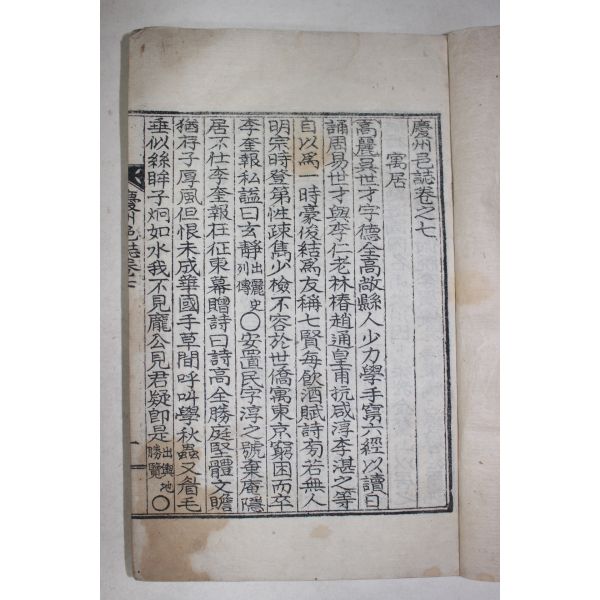 慶州邑誌卷之七
寓居
高麗吳世才字德全高敞縣人少力學手寫六經以讀日
誦周易世才與李仁老林椿趙通皇甫抗咸淳李湛之等
自以爲一時豪俊結爲友稱七賢每飮酒賦詩旁若無人
明宗時登第性疎雋少檢不容於世僑寓東京窮困而卒
李奎報私諡曰玄靜出麗史列傳○安置民字淳之號棄庵隱
居不仕李奎報在征東幕贈詩曰詩高全勝庭堅體文贍
猶存子厚風但恨未成華國手草間呼叫學秋蟲又眉毛
垂似絲眸子炯如水我不見龐公見君疑卽是出輿地勝覽○
慶州邑誌卷七
一